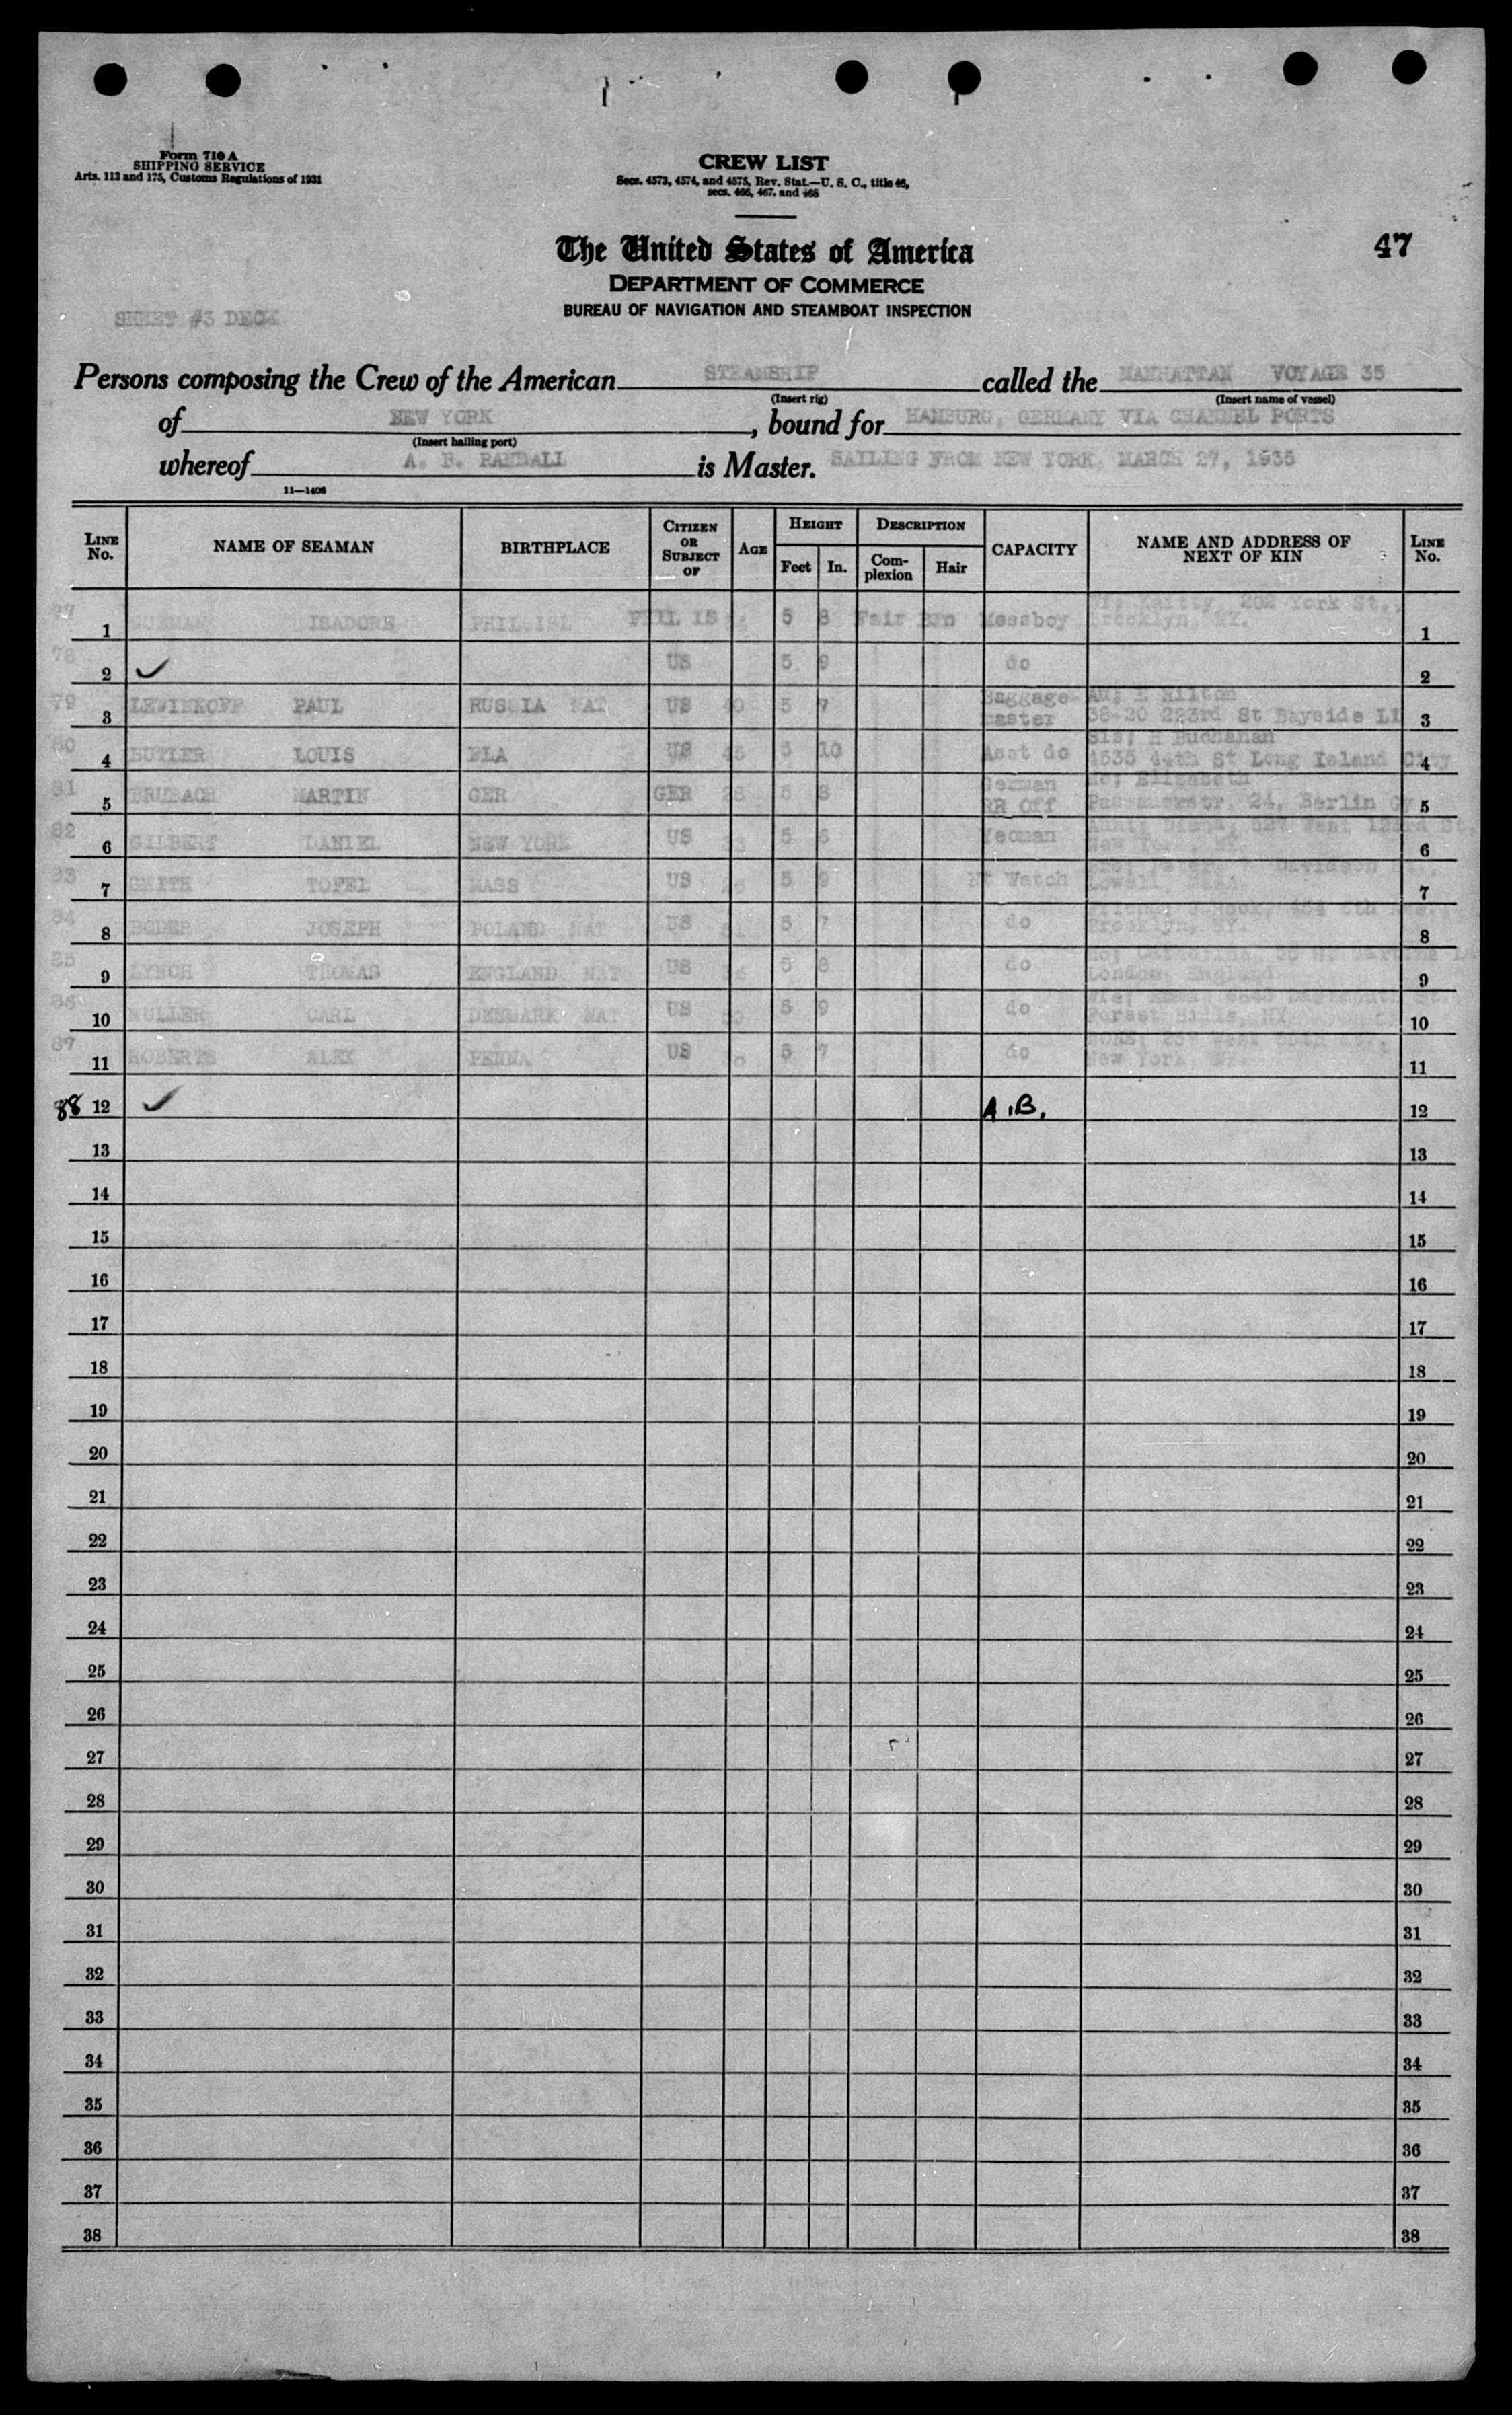 Form 710 A
SHIPPING SERVICE
Arts. 113 and 175, Customs Regulations of 1931
CREW LIST
Secs. 4573, 4574, and 4575, Rev. Stat.—U. S. C., title 46,
secs. 466, 467, and 468
The United States of America
47
DEPARTMENT OF COMMERCE
BUREAU OF NAVIGATION AND STEAMBOAT INSPECTION
SHEET #3 DECK
Persons composing the Crew of the American STEAMSHIP called the MANHATTAN VOYAGE 35
(Insert rig) (Insert name of vessel)
of NEW YORK, bound for HAMBURG, GERMANY VIA CHANNEL PORTS
(Insert hailing port)
whereof A. B. RANDALL is Master. SAILING FROM NEW YORK, MARCH 27, 1935
11—1408
LINE No. NAME OF SEAMAN BIRTHPLACE CITIZEN OR SUBJECT OF AGE HEIGHT Feet In. DESCRIPTION Complexion Hair CAPACITY NAME AND ADDRESS OF NEXT OF KIN LINE No.
1 ISADORE PHIL ISL PHIL IS 5 8 Fair Brn Messboy 202 York St., Brooklyn, NY. 1
78 2 ✓ US 5 9 do 2
79 3 LEWINKOFF PAUL RUSSIA NAT US 40 5 7 Baggage master E Hilton 223rd St Bayside LI 3
80 4 BUTLER LOUIS FLA US 45 5 10 Asst do Sis; H Buchanan 4535 44th St Long Island City 4
81 5 BRUBACH MARTIN GER GER 5 8 German RR Off Mo; Elizabeth 24, Berlin 5
82 6 GILBERT DANIEL NEW YORK US 5 6 Yeoman New York, NY. 6
83 7 SMITH MASS US 5 9 Nt Watch Davidson Lowell, Mass. 7
84 8 JOSEPH POLAND NAT US 5 7 do Brooklyn, NY. 8
85 9 LYNCH THOMAS ENGLAND NAT US 5 8 do London, England 9
86 10 CARL DENMARK NAT US 5 9 do Forest Hills, NY 10
87 11 ROBERTS ALEX PENNA US 5 7 do New York NY. 11
88 12 ✓ A.B. 12
13 13
14 14
15 15
16 16
17 17
18 18
19 19
20 20
21 21
22 22
23 23
24 24
25 25
26 26
27 27
28 28
29 29
30 30
31 31
32 32
33 33
34 34
35 35
36 36
37 37
38 38